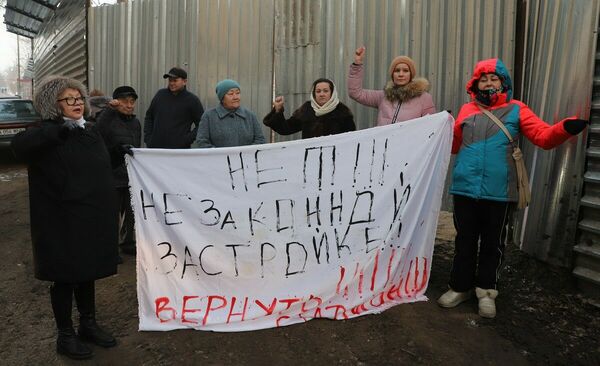 НЕТ!!!
НЕЗАКОННОЙ
ЗАСТРОЙКЕ!!
ВЕРНУТЬ